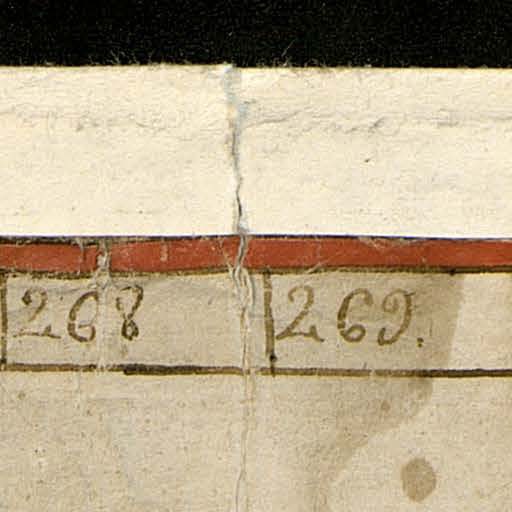 268 269.